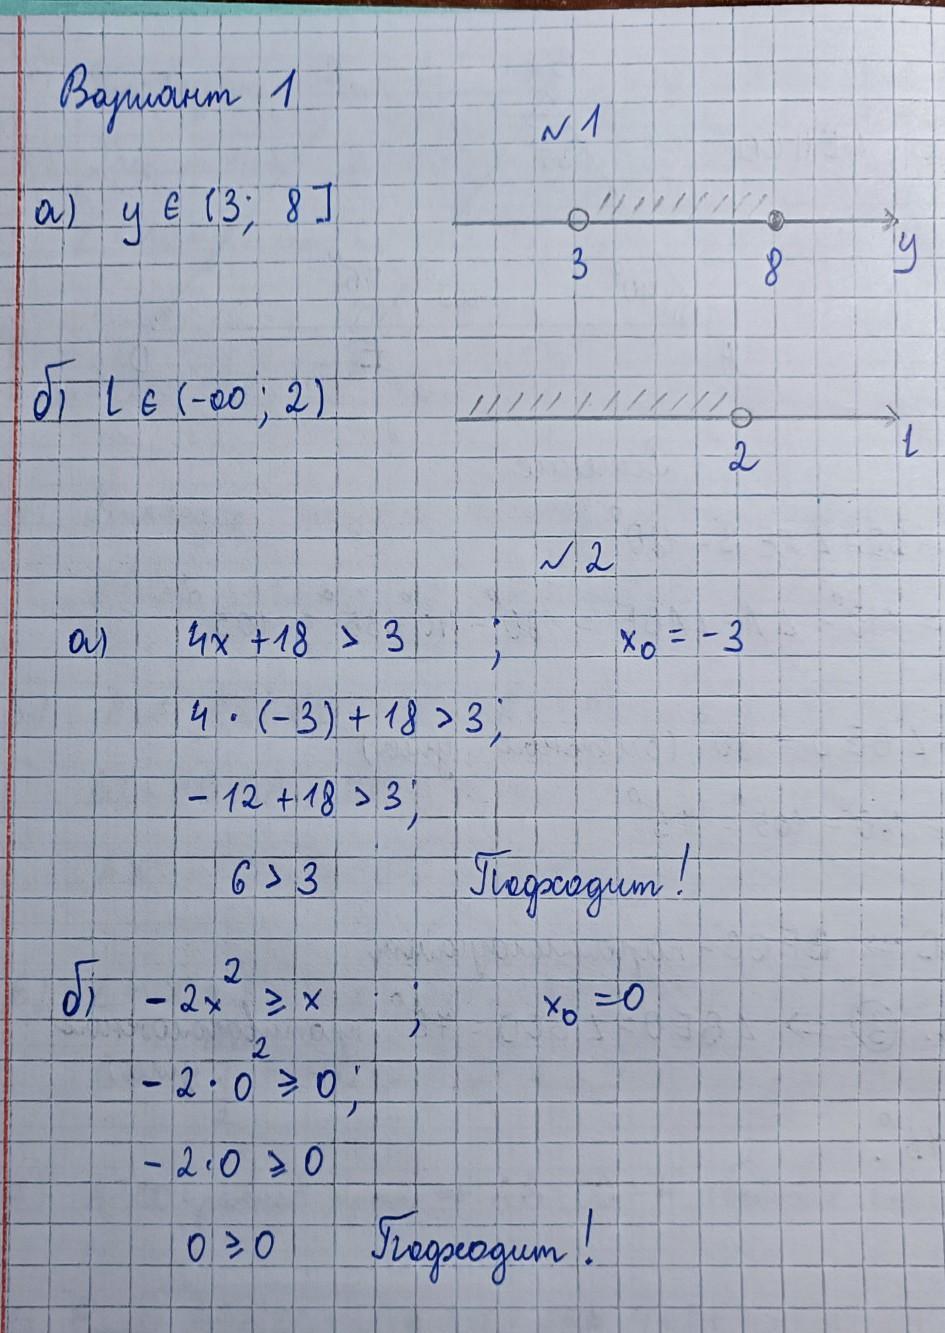 Вариант 1
№1
а) y ∈ (3; 8]
3 8 y
б) l ∈ (-∞; 2)
2 l
№2
а) 4x + 18 > 3 ; x₀ = -3
4 · (-3) + 18 > 3;
- 12 + 18 > 3;
6 > 3 Подходит!
б) - 2x² ≥ x ; x₀ = 0
- 2 · 0² ≥ 0;
- 2 · 0 ≥ 0
0 ≥ 0 Подходит!